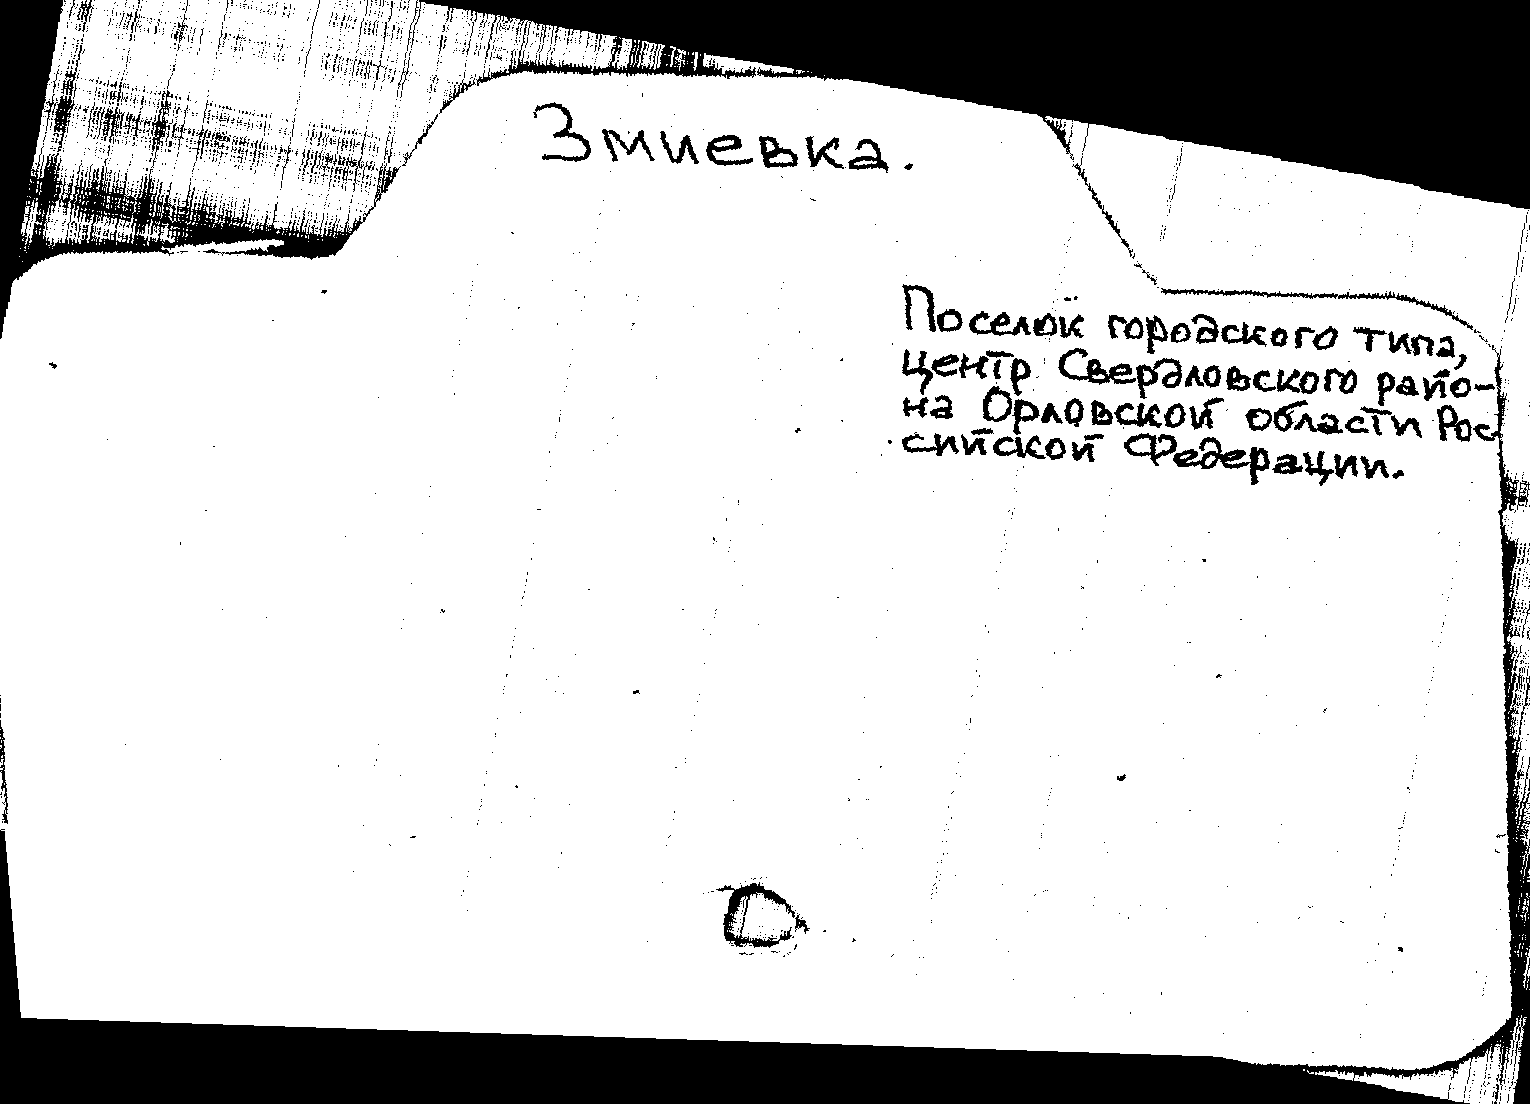 Змиевка.
Поселок городского типа,
центр Свердловского райо-
на Орловской области Рос-
сийской Федерации.